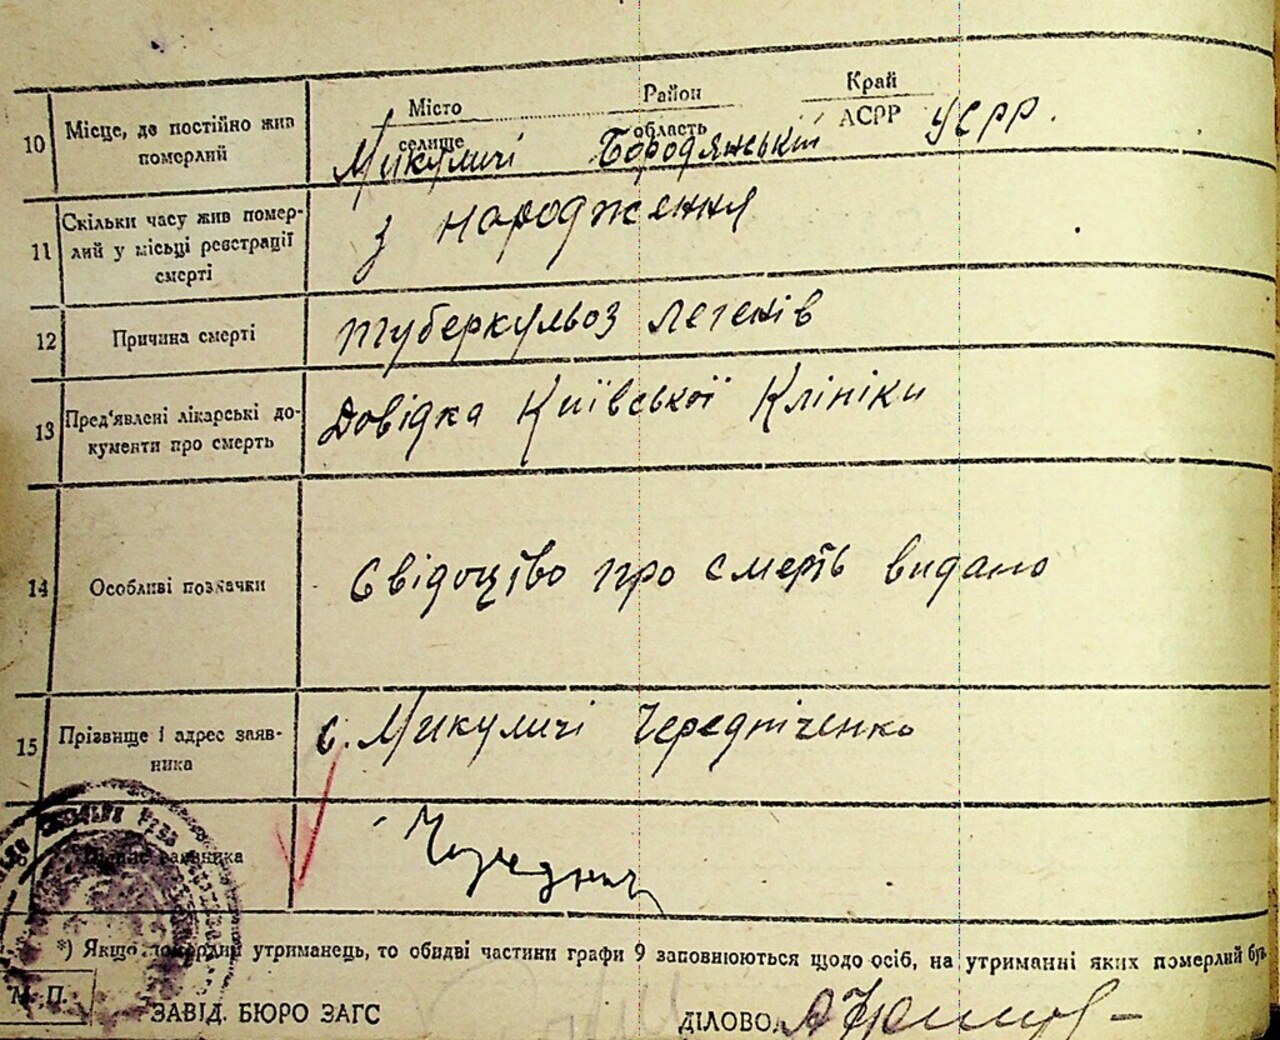 Місто Район Край
селище область АСРР УСРР.
Микуличі Бородянський
10 Місце, де постійно жив
померлий
11 Скільки часу жив помер-
лий у місці реєстрації
смерті
з народження
12 Причина смерті туберкульоз легенів
13 Пред'явлені лікарські до-
кументи про смерть
Довідка Київської Клініки
14 Особливі позначки Свідоцтво про смерть видано
15 Прізвище і адрес заяв-
ника
с. Микуличі Чередніченко
заявника
*) Якщо померлий утриманець, то обидві частини графи 9 заповнюються щодо осіб, на утриманні яких померлий був.
М. П.
ЗАВІД. БЮРО ЗАГС ДІЛОВОД